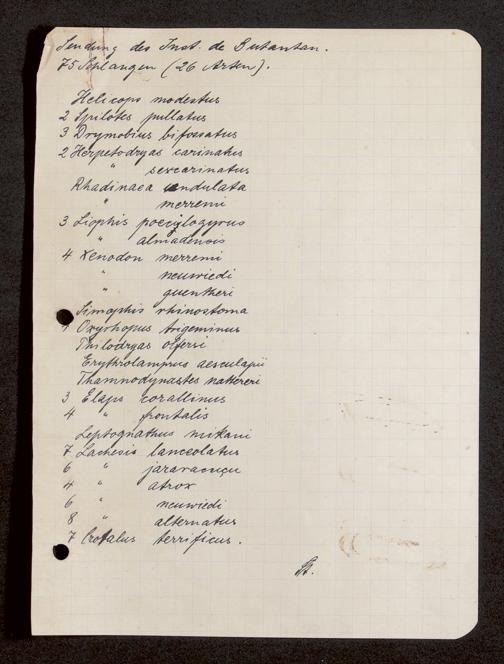 Sendung des Inst. de Butantan.
75 Schlangen (26 Arten).
Helicops modestus
2 Spilotes pullatus
3 Drymobius bifossatus
2 Herpetodryas carinatus
" sexcarinatus
Rhadinaea undulata
" merremi
3 Liophis poecilogyrus
" almadensis
4 Xenodon merremi
" neuwiedi
" guentheri
Simophis rhinostoma
1 Oxyrhopus trigeminus
Philodryas olfersi
Erythrolamprus aesculapii
Thamnodynastes nattereri
3 Elaps corallinus
4 " frontalis
Leptognathus mikani
7 Lachesis lanceolatus
6 " jararacuçu
4 " atrox
6 " neuwiedi
8 " alternatus
7 Crotalus terrificus.